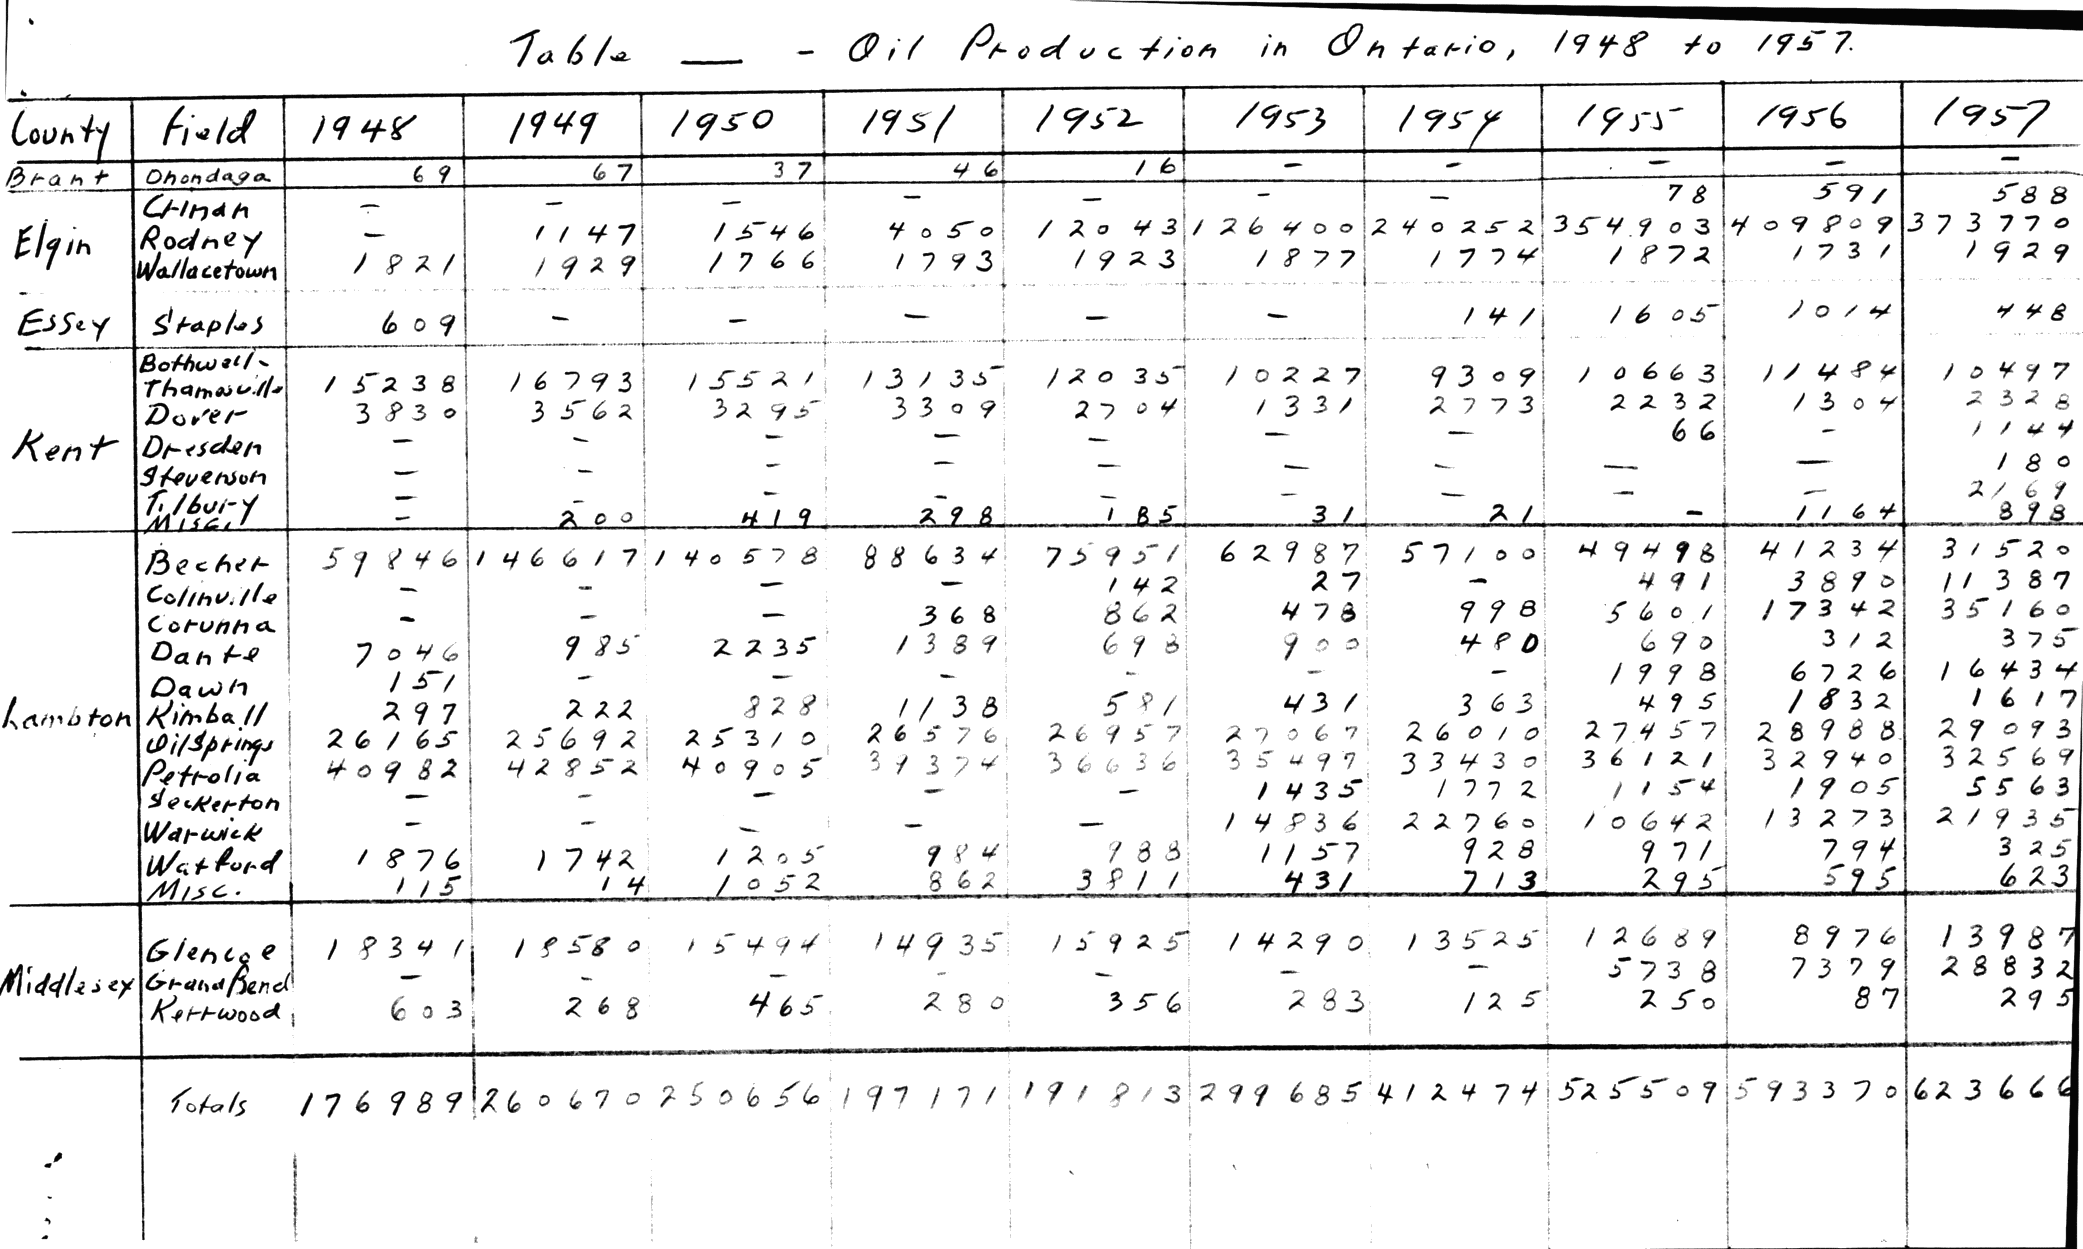 Table — - Oil Production in Ontario, 1948 to 1957.
County Field 1948 1949 1950 1951 1952 1953 1954 1955 1956 1957
Brant Onondaga 69 67 37 46 16 - - - - -
Elgin Crinan - - - - - - - 78 591 588
Rodney - 1147 1546 4050 12043 126400 240252 354903 409809 373770
Wallacetown 1821 1929 1766 1793 1923 1877 1774 1872 1731 1929
Essex Staples 609 - - - - - 141 1605 1014 448
Kent Bothwell-
Thamesville 15238 16793 15521 13135 12035 10227 9309 10663 11484 10497
Dover 3830 3562 3295 3309 2704 1331 2773 2232 1304 2328
Dresden - - - - - - - 66 - 1144
Stevenson - - - - - - - - - 180
Tilbury - - - - - - - - - 2169
Misc. - 200 419 298 185 31 21 - 1164 898
Lambton Becher 59846 146617 140578 88634 75951 62987 57100 49498 41234 31520
Colinville - - - - 142 27 - 491 3890 11387
Corunna - - - 368 862 478 998 5601 17342 35160
Dante 7046 985 2235 1389 698 900 480 690 312 375
Dawn 151 - - - - - - 1998 6726 16434
Kimball 297 222 828 1138 581 431 363 495 1832 1617
Oil Springs 26165 25692 25310 26576 26957 27067 26010 27457 28988 29093
Petrolia 40982 42852 40905 39374 36636 35497 33430 36121 32940 32569
Seckerton - - - - - 1435 1772 1154 1905 5563
Warwick - - - - - 14836 22760 10642 13273 21935
Watford 1876 1742 1205 984 988 1157 928 971 794 325
Misc. 115 14 1052 862 3811 431 713 295 595 623
Middlesex Glencoe 18341 18580 15494 14935 15925 14290 13525 12689 8976 13987
Grand Bend - - - - - - - 5738 7379 28832
Kerrwood 603 268 465 280 356 283 125 250 87 295
Totals 176989 260670 250656 197171 191813 299685 412474 525509 593370 623666